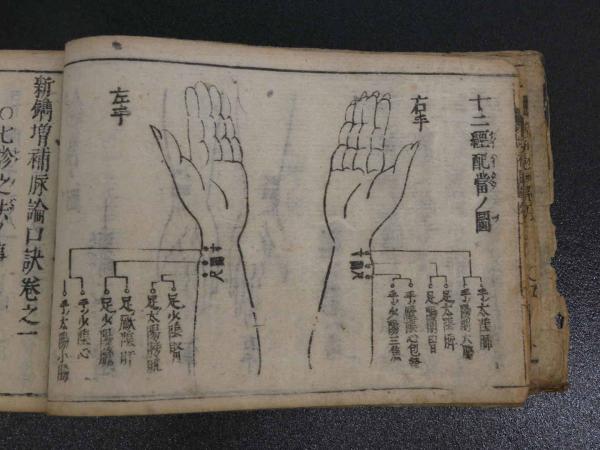 十二經配當ノ圖
右手
寸
關
尺
手太陰肺
手陽明大腸
足太陰脾
足陽明胃
手厥陰心包絡
手少陽三焦
左手
寸
關
尺
足少陰腎
足太陽膀胱
足厥陰肝
足少陽膽
手少陰心
手太陽小腸
新鐫増補脉論口訣卷之一
〇七診之法ノ事